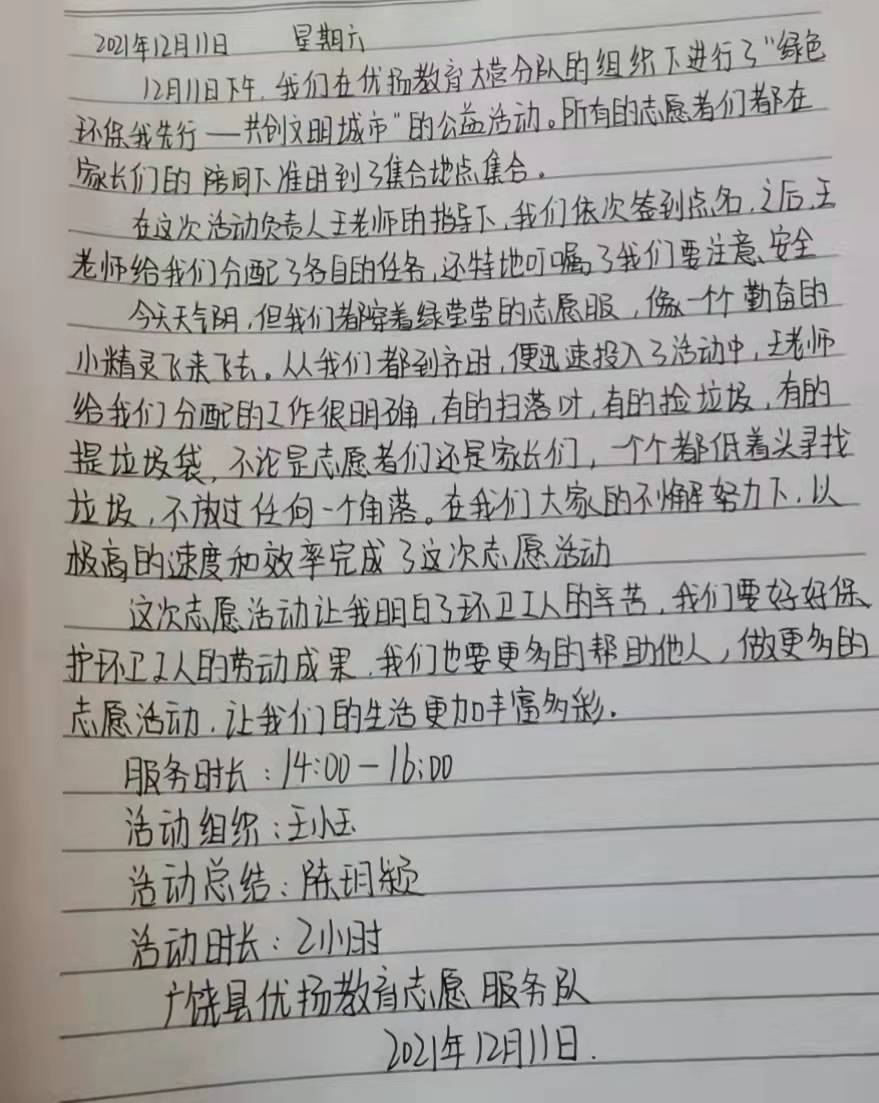 2021年12月11日 星期六
12月11日下午,我们在优扬教育大营分队的组织下进行了“绿色
环保我先行——共创文明城市”的公益活动。所有的志愿者们都在
家长们的陪同下准时到了集合地点集合.
在这次活动负责人王老师的指导下,我们依次签到点名,之后,王
老师给我们分配了各自的任务,还特地叮嘱了我们要注意安全
今天天气阴,但我们都穿着绿莹莹的志愿服,像一个个勤奋的
小精灵飞来飞去。从我们都到齐时,便迅速投入了活动中,王老师
给我们分配的工作很明确,有的扫落叶,有的捡垃圾,有的
提垃圾袋,不论是志愿者们还是家长们,一个个都低着头寻找
垃圾,不放过任何一个角落。在我们大家的不懈努力下,以
极高的速度和效率完成了这次志愿活动
这次志愿活动让我明白了环卫工人的辛苦,我们要好好保
护环卫工人的劳动成果,我们也要更多的帮助他人,做更多的
志愿活动,让我们的生活更加丰富多彩.
服务时长:14:00-16:00
活动组织:王小玉
活动总结:陈玥颖
活动时长:2小时
广饶县优扬教育志愿服务队
2021年12月11日.